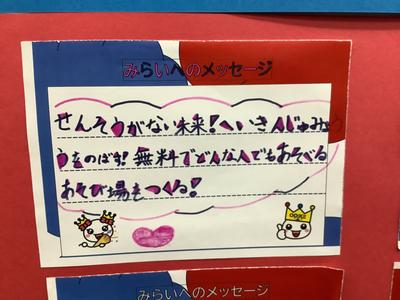 みらいへのメッセージ
せんそうがない未来!へいきんじゅみょ
うをのばす!無料でどんな人でもあそべる
あそび場をつくる!
みらいへのメッセージ